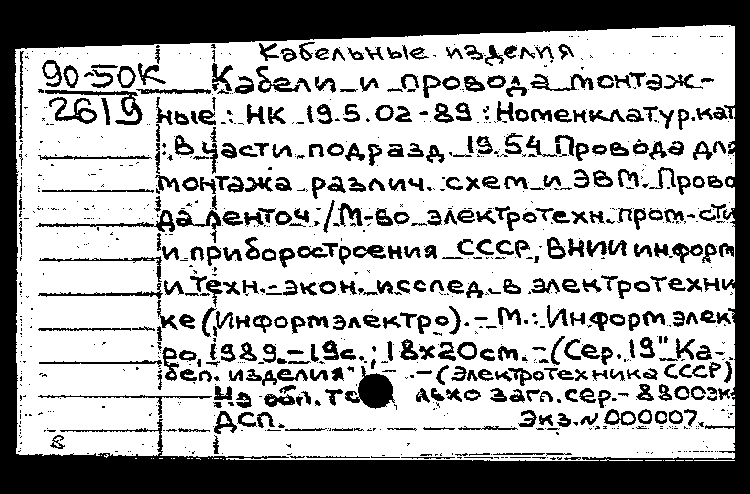 Кабельные изделия
90-50К Кабели и провода монтаж-
2619 ные : НК 19.5.02-89 : Номенклатур.кат
: В части подразд. 19.54 Провода для
монтажа различ. схем и ЭВМ. Прово
да ленточ. / М-во электротехн. пром-сти
и приборостроения СССР, ВНИИ информ
и техн.-экон. исслед. в электротехни
ке (Информэлектро). - М.: Информэлект
ро, 1989. - 19с. ; 18х20см. - (Сер. 19 "Ка-
бел. изделия" . - (Электротехника СССР)
На обл. то лько загл. сер. - 8800эк
ДСП. Экз. N 000007.
8